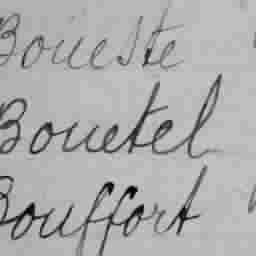 Boueste
Bouetel
Bouffort